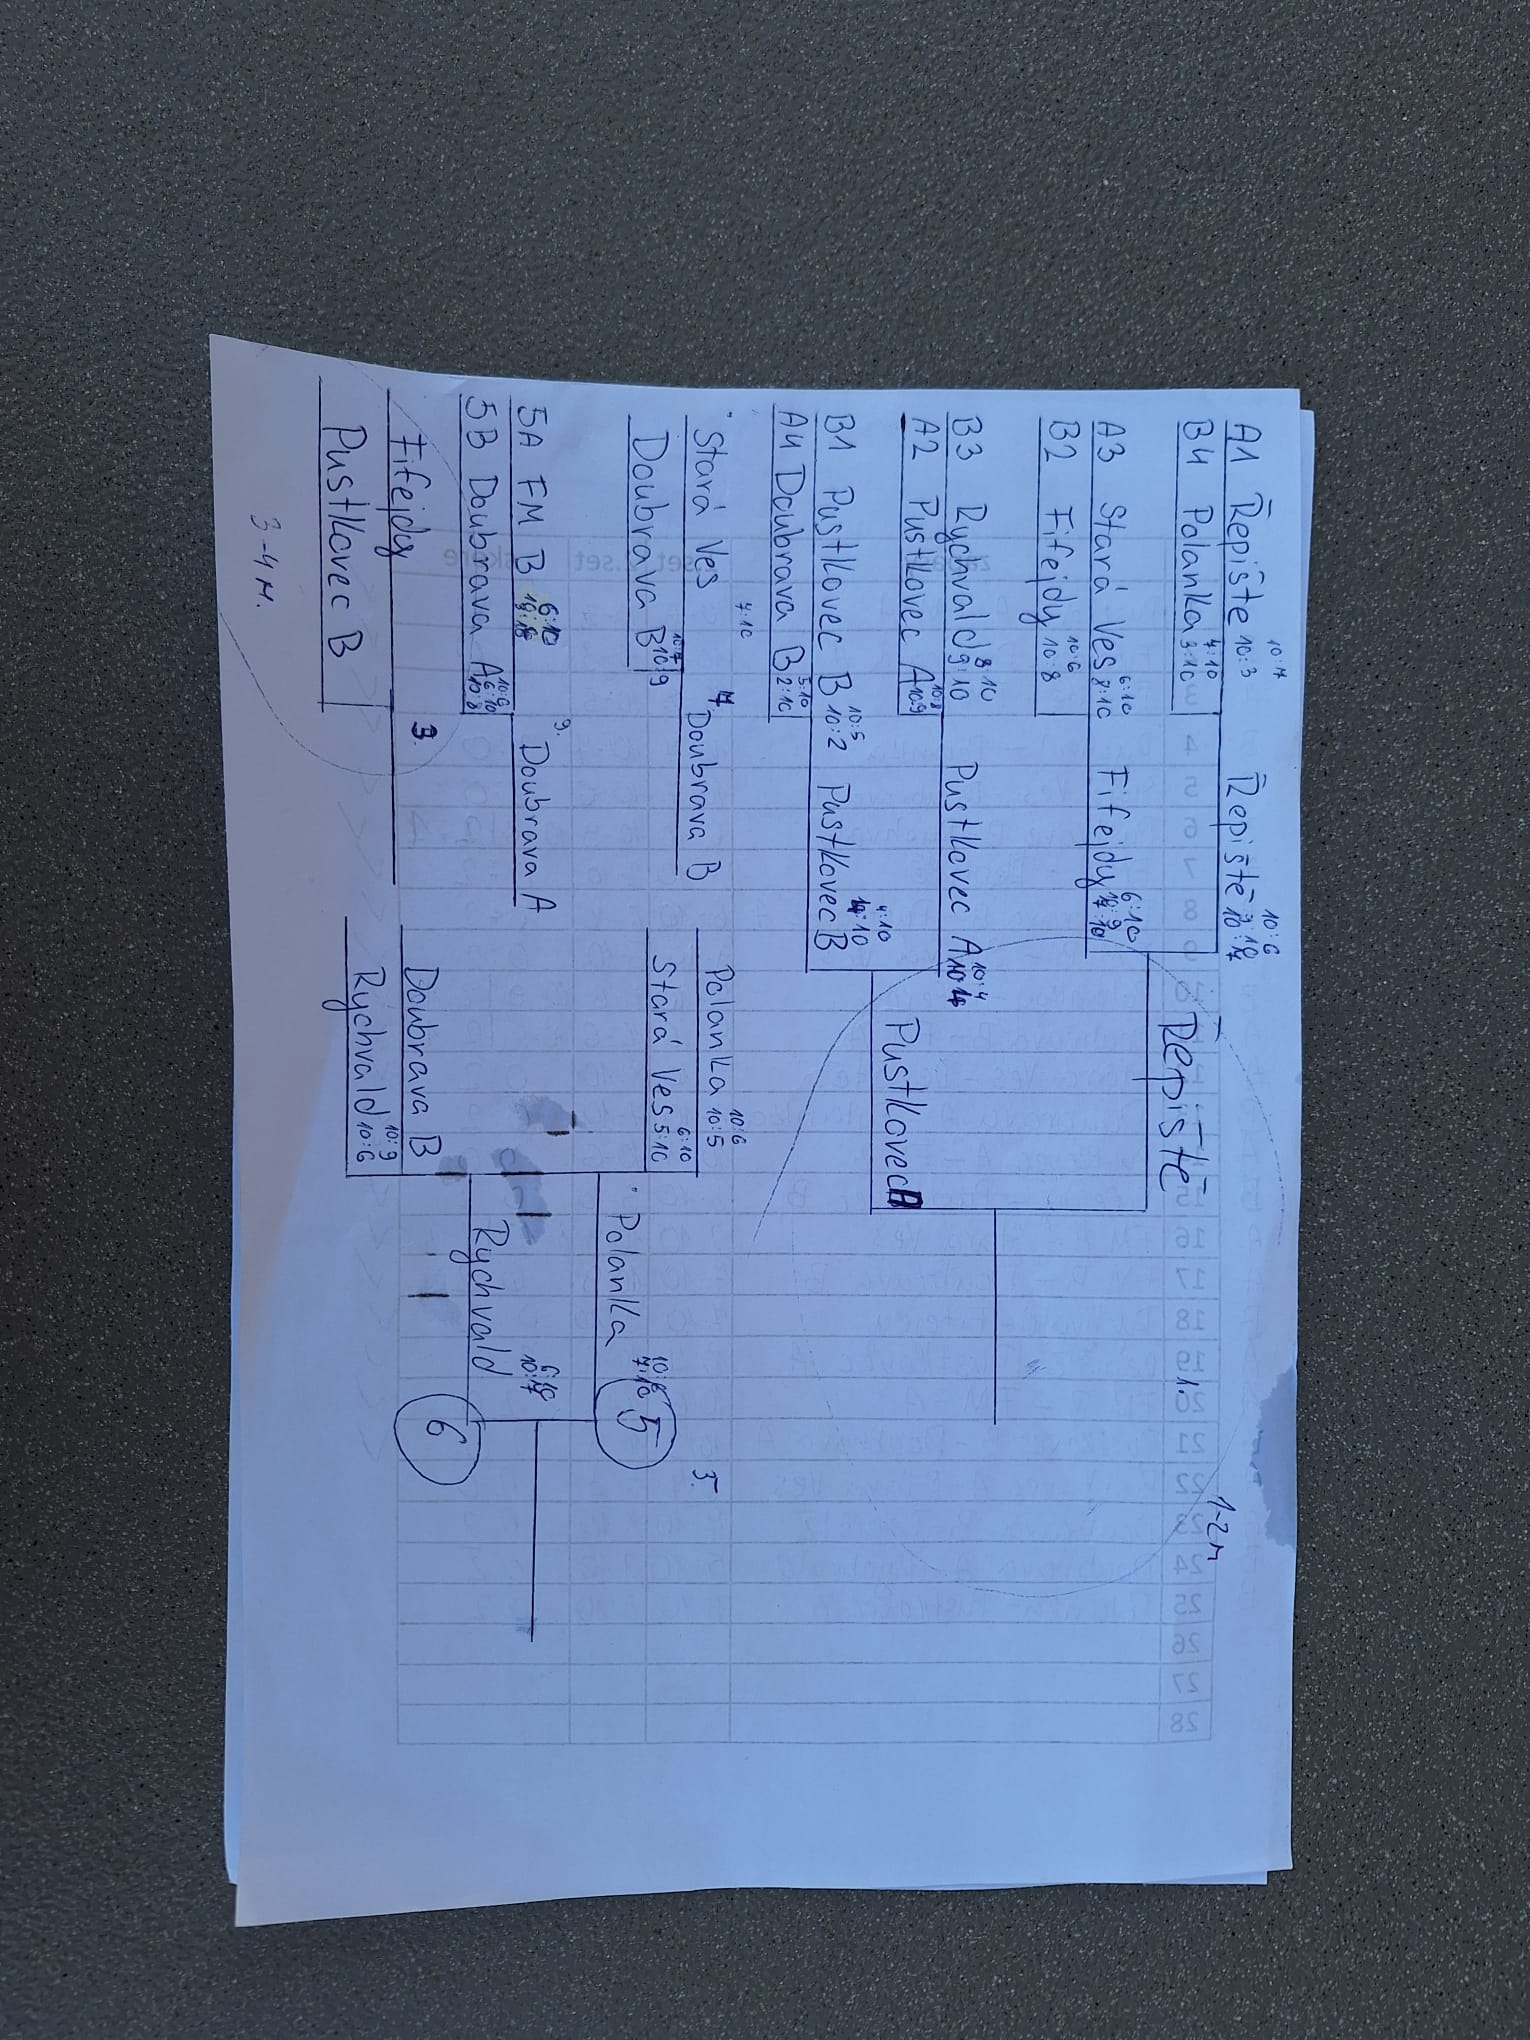 A1 Řepiště 10:7 10:3
B4 Polanka 7:10 3:10
A3 Stará Ves 6:10 7:10
B2 Fifejdy 10:6 10:8
B3 Rychvald 8:10 9:10
A2 Pustkovec A 10:8 10:9
B1 Pustkovec B 10:5 10:2
A4 Doubrava B 5:10 2:10
Řepiště 10:6
Fifejdy 6:10
Pustkovec A 10:4
Pustkovec B 4:10
Řepiště
Pustkovec A
1.
1-2 M
Stará Ves 7:10
Doubrava B 10:7 10:9
7.
Doubrava B
5A FM B 6:10
5B Doubrava A 10:6 6:10 10:8
9.
Doubrava A
Fifejdy
Pustkovec B
3.
3-4 M.
Polanka 10:6 10:5
Stará Ves 6:10 5:10
Doubrava B
Rychvald 10:9 10:6
Polanka
Rychvald
5
6
5.